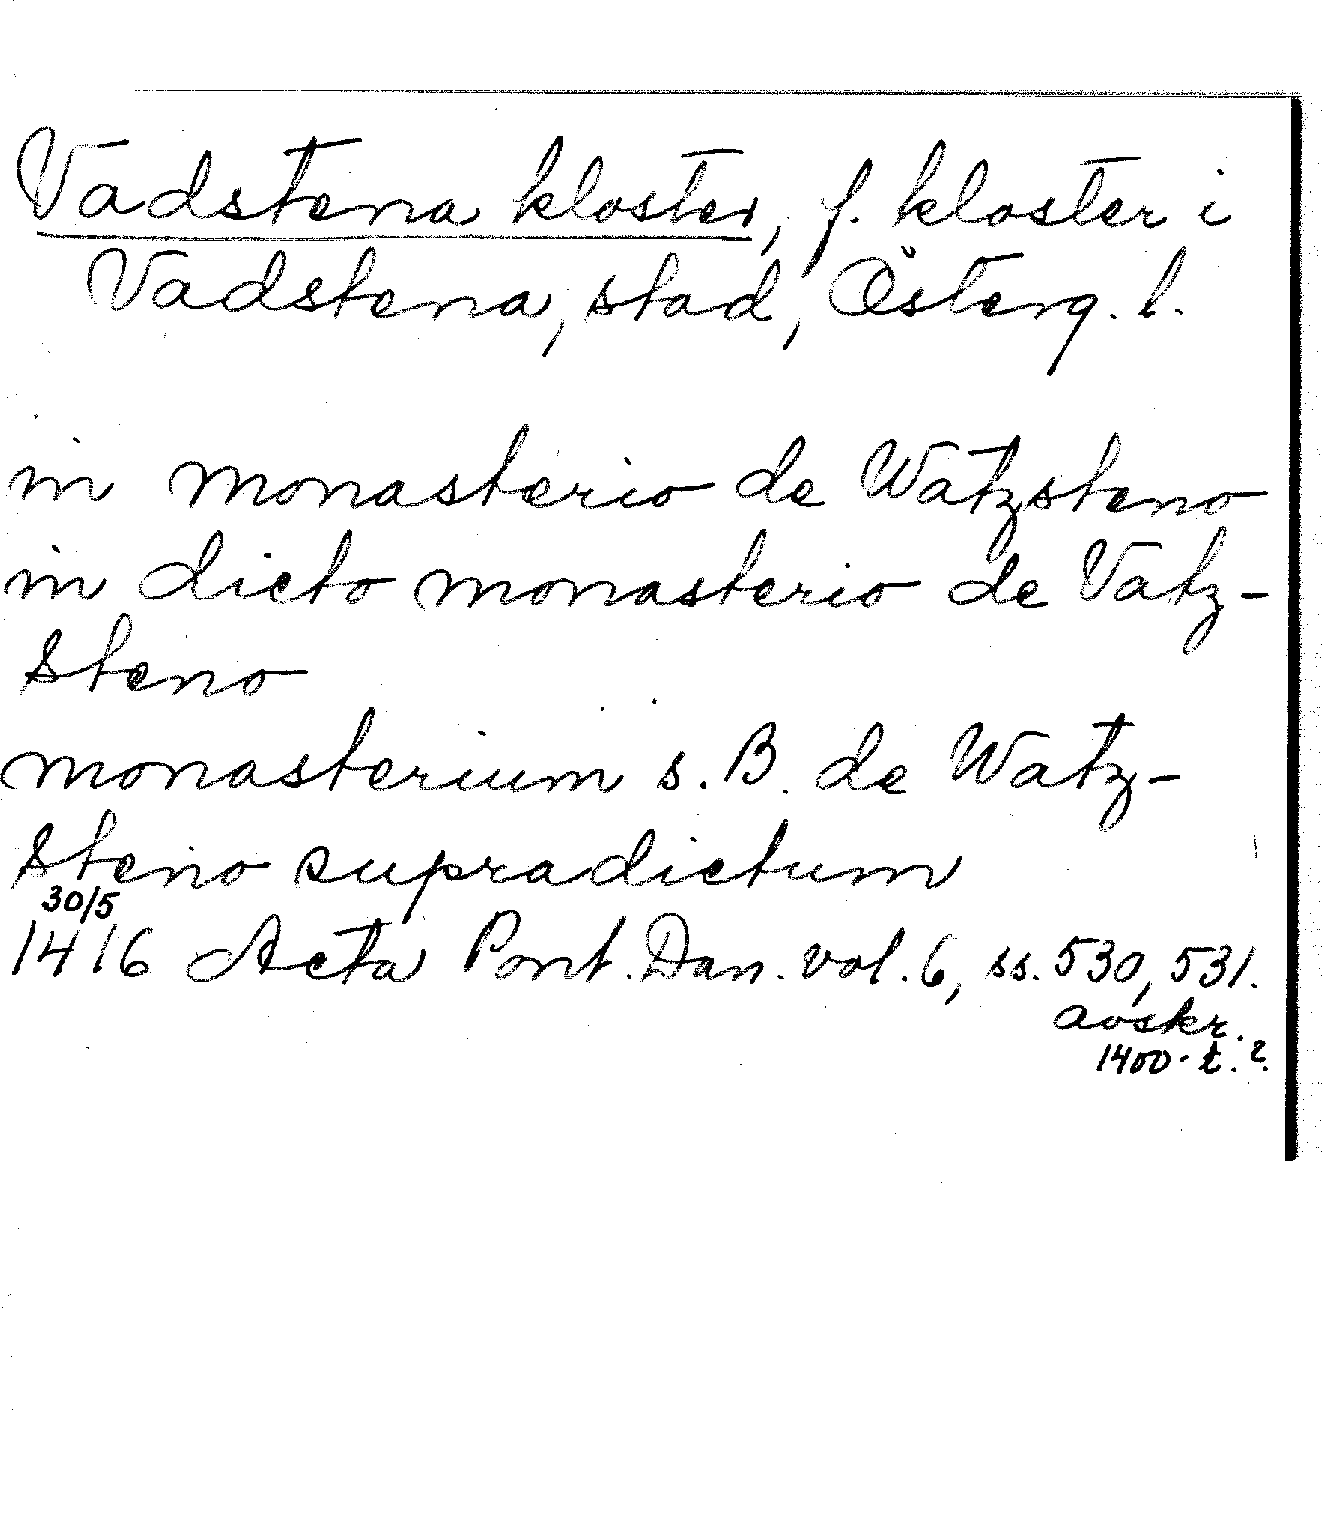 Vadstena kloster, f. kloster i
Vadstena, stad, Österg. l.
in monasterio de Watzsteno
in dicto monasterio de Vatz-
steno
monasterium s. B. de Watz-
steno supradictum
30/5
1416 Acta Pont. Dan. vol. 6, ss. 530, 531.
avskr.
1400-t.?